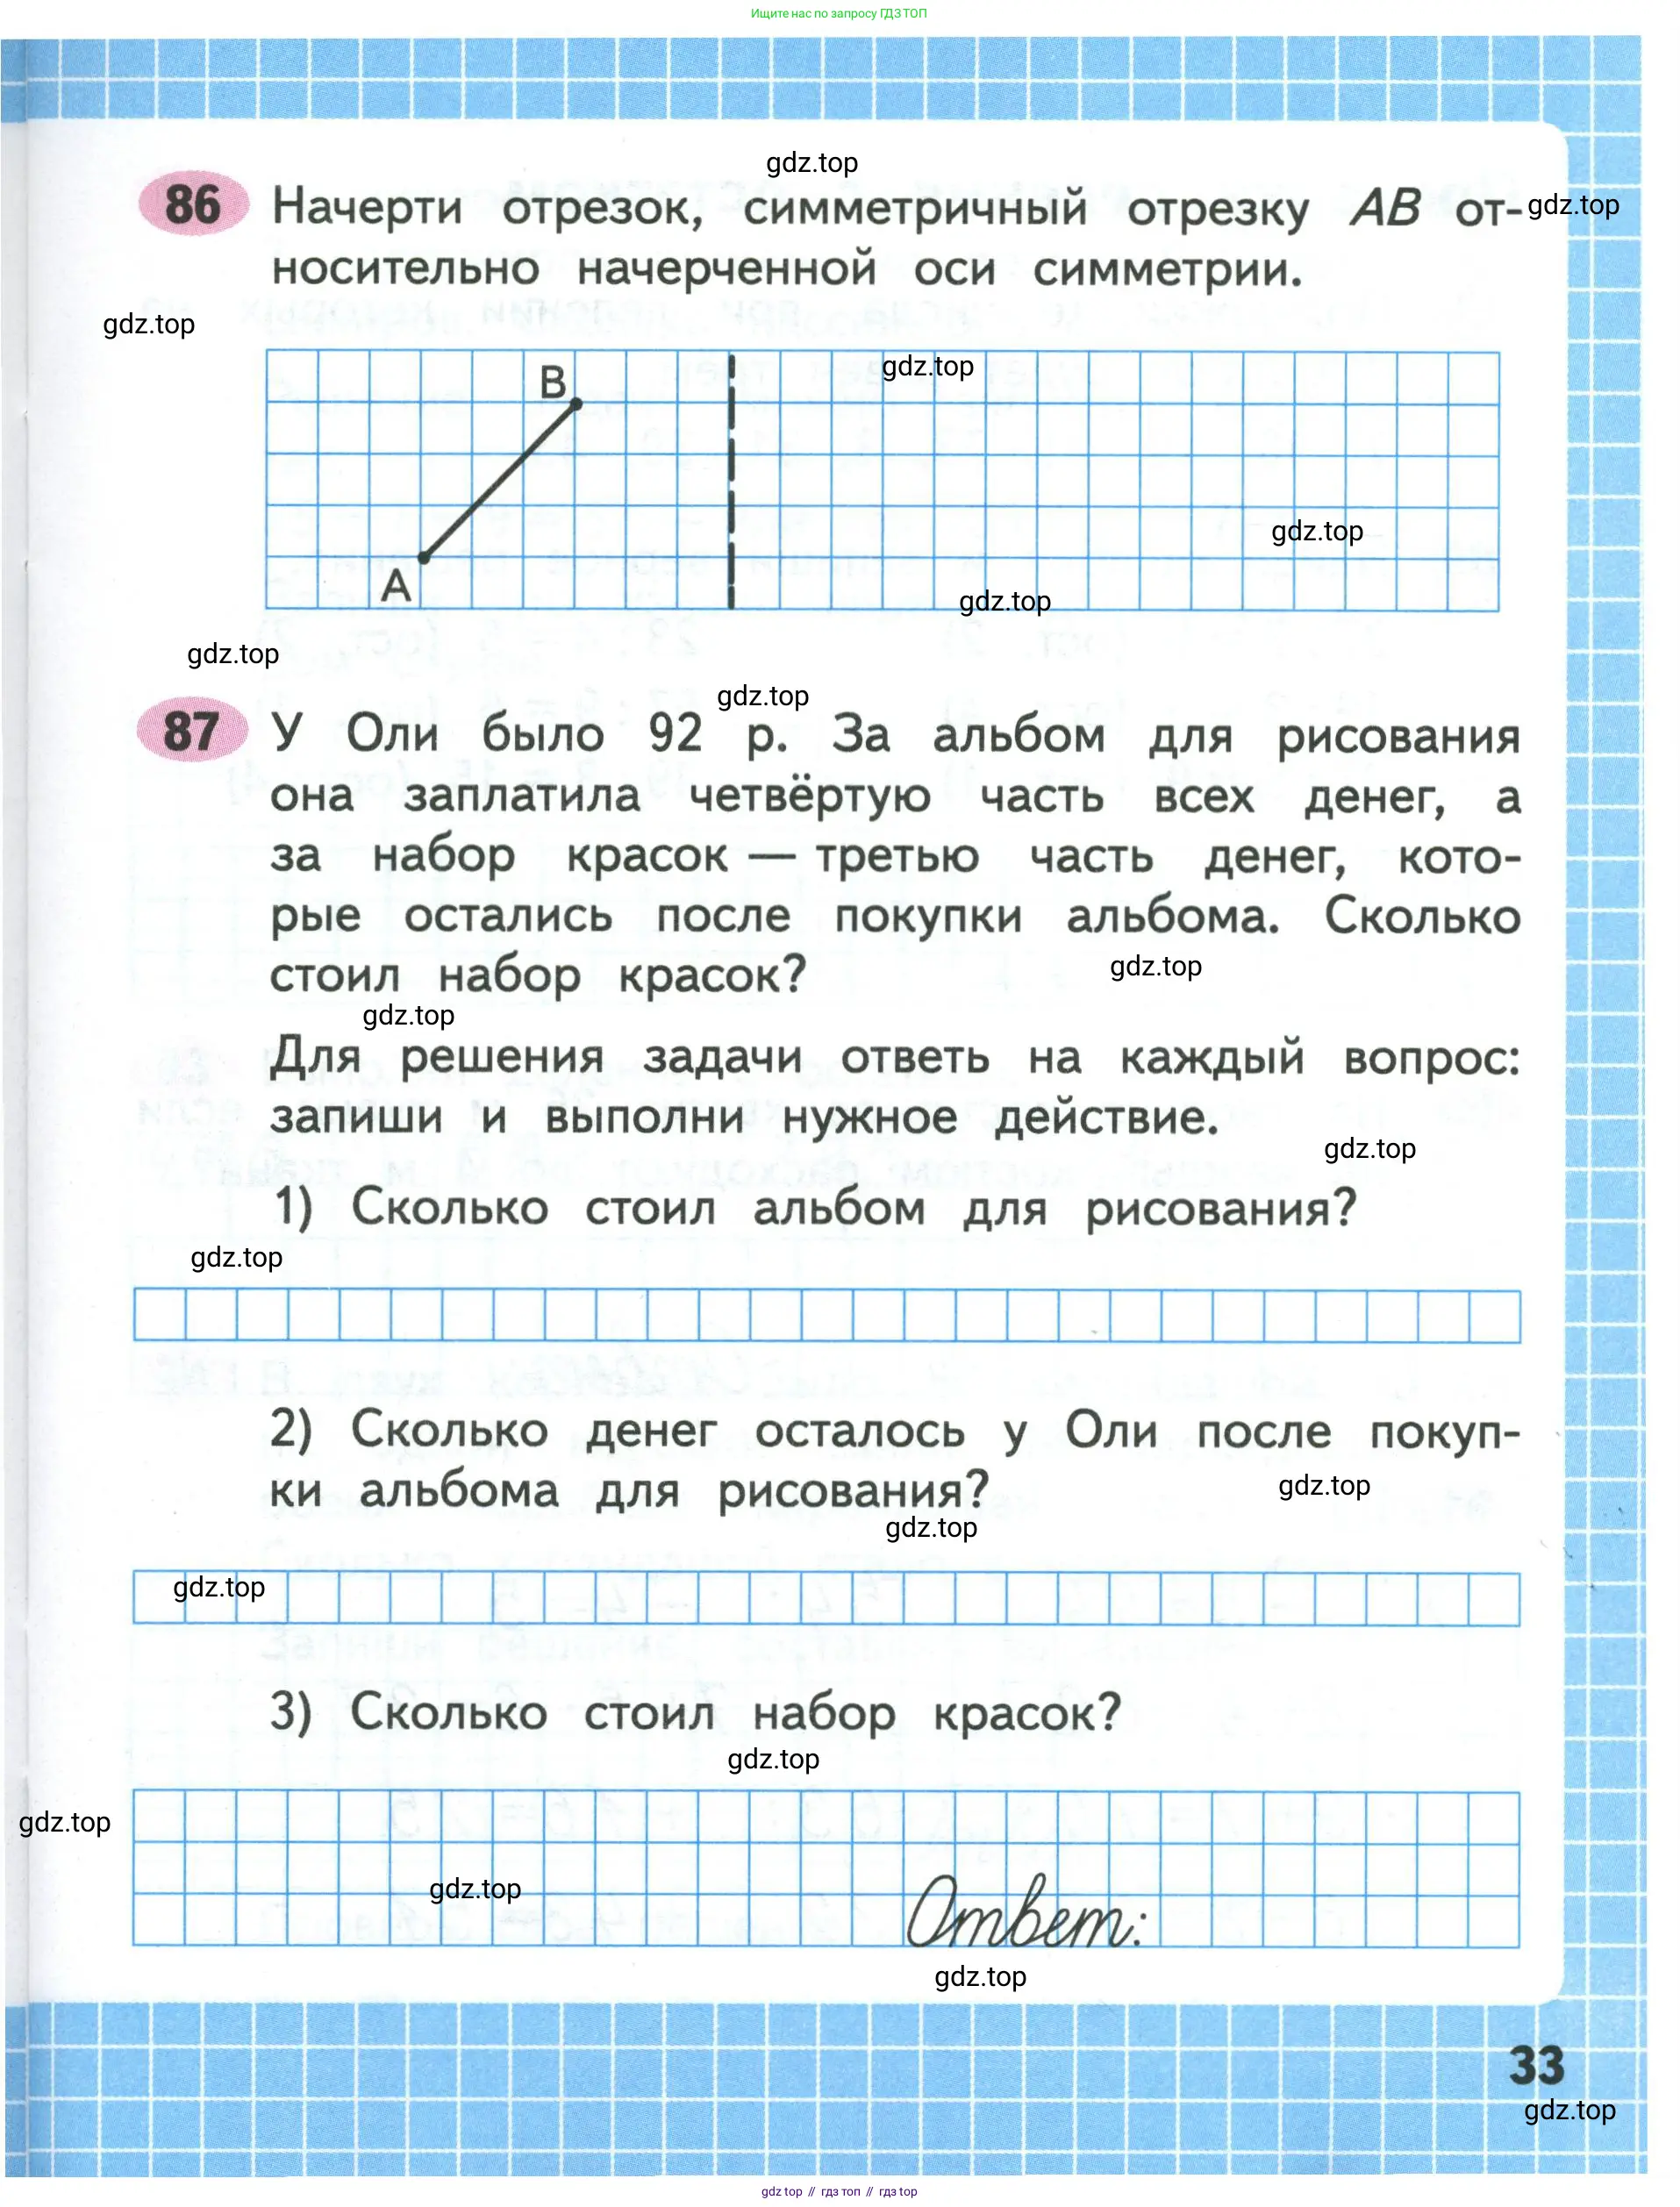 Ищите нас по запросу ГДЗ ТОП
gdz.top
86 Начерти отрезок, симметричный отрезку AB от-
gdz.top
носительно начерченной оси симметрии.
gdz.top
gdz.top
B
gdz.top
A
gdz.top
gdz.top
gdz.top
87 У Оли было 92 р. За альбом для рисования
она заплатила четвёртую часть всех денег, а
за набор красок — третью часть денег, кото-
рые остались после покупки альбома. Сколько
стоил набор красок?
gdz.top
gdz.top
Для решения задачи ответь на каждый вопрос:
запиши и выполни нужное действие.
gdz.top
1) Сколько стоил альбом для рисования?
gdz.top
2) Сколько денег осталось у Оли после покуп-
ки альбома для рисования?
gdz.top
gdz.top
gdz.top
3) Сколько стоил набор красок?
gdz.top
gdz.top
gdz.top
Ответ:
gdz.top
33
gdz.top
gdz top // гдз топ // гдз top